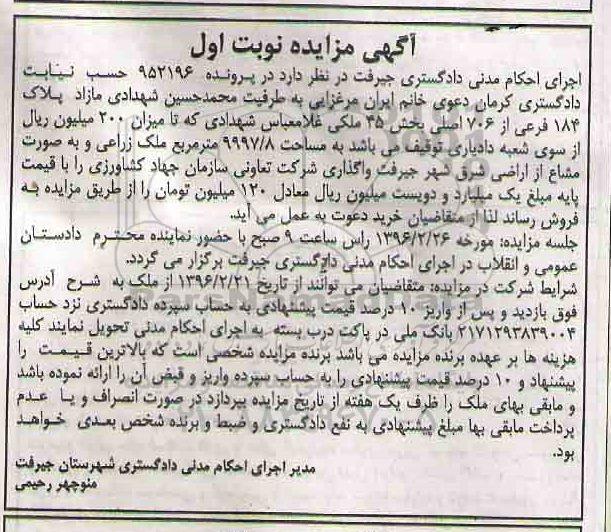 آگهی مزایده نوبت اول
اجرای احکام مدنی دادگستری جیرفت در نظر دارد در پرونده ۹۵۲۱۹۶ حسب نیابت
دادگستری کرمان دعوی خانم ایران مرغزایی به طرفیت محمدحسین شهدادی مازاد پلاک
۱۸۴ فرعی از ۷۰۶ اصلی بخش ۴۵ ملکی غلامعباس شهدادی که تا میزان ۲۰۰ میلیون ریال
از سوی شعبه دادیاری توقیف می باشد به مساحت ۹۹۹۷/۸ مترمربع ملک زراعی و به صورت
مشاع از اراضی شرق شهر جیرفت واگذاری شرکت تعاونی سازمان جهاد کشاورزی را با قیمت
پایه مبلغ یک میلیارد و دویست میلیون ریال معادل ۱۲۰ میلیون تومان را از طریق مزایده به
فروش رساند لذا از متقاضیان خرید دعوت به عمل می آید.
جلسه مزایده: مورخه ۱۳۹۶/۲/۲۶ راس ساعت ۹ صبح با حضور نماینده محترم دادستان
عمومی و انقلاب در اجرای احکام مدنی دادگستری جیرفت برگزار می گردد.
شرایط شرکت در مزایده: متقاضیان می توانند از تاریخ ۱۳۹۶/۲/۲۱ از ملک به شرح آدرس
فوق بازدید و پس از واریز ۱۰ درصد قیمت پیشنهادی به حساب سپرده دادگستری نزد حساب
۲۱۷۱۲۹۳۸۳۹۰۰۴ بانک ملی در پاکت درب بسته به اجرای احکام مدنی تحویل نمایند کلیه
هزینه ها بر عهده برنده مزایده می باشد برنده مزایده شخصی است که بالاترین قیمت را
پیشنهاد و ۱۰ درصد قیمت پیشنهادی را به حساب سپرده واریز و قبض آن را ارائه نموده باشد
و مابقی بهای ملک را ظرف یک هفته از تاریخ مزایده بپردازد در صورت انصراف و یا عدم
پرداخت مابقی بها مبلغ پیشنهادی به نفع دادگستری و ضبط و برنده شخص بعدی خواهد
بود.
مدیر اجرای احکام مدنی دادگستری شهرستان جیرفت
منوچهر رحیمی